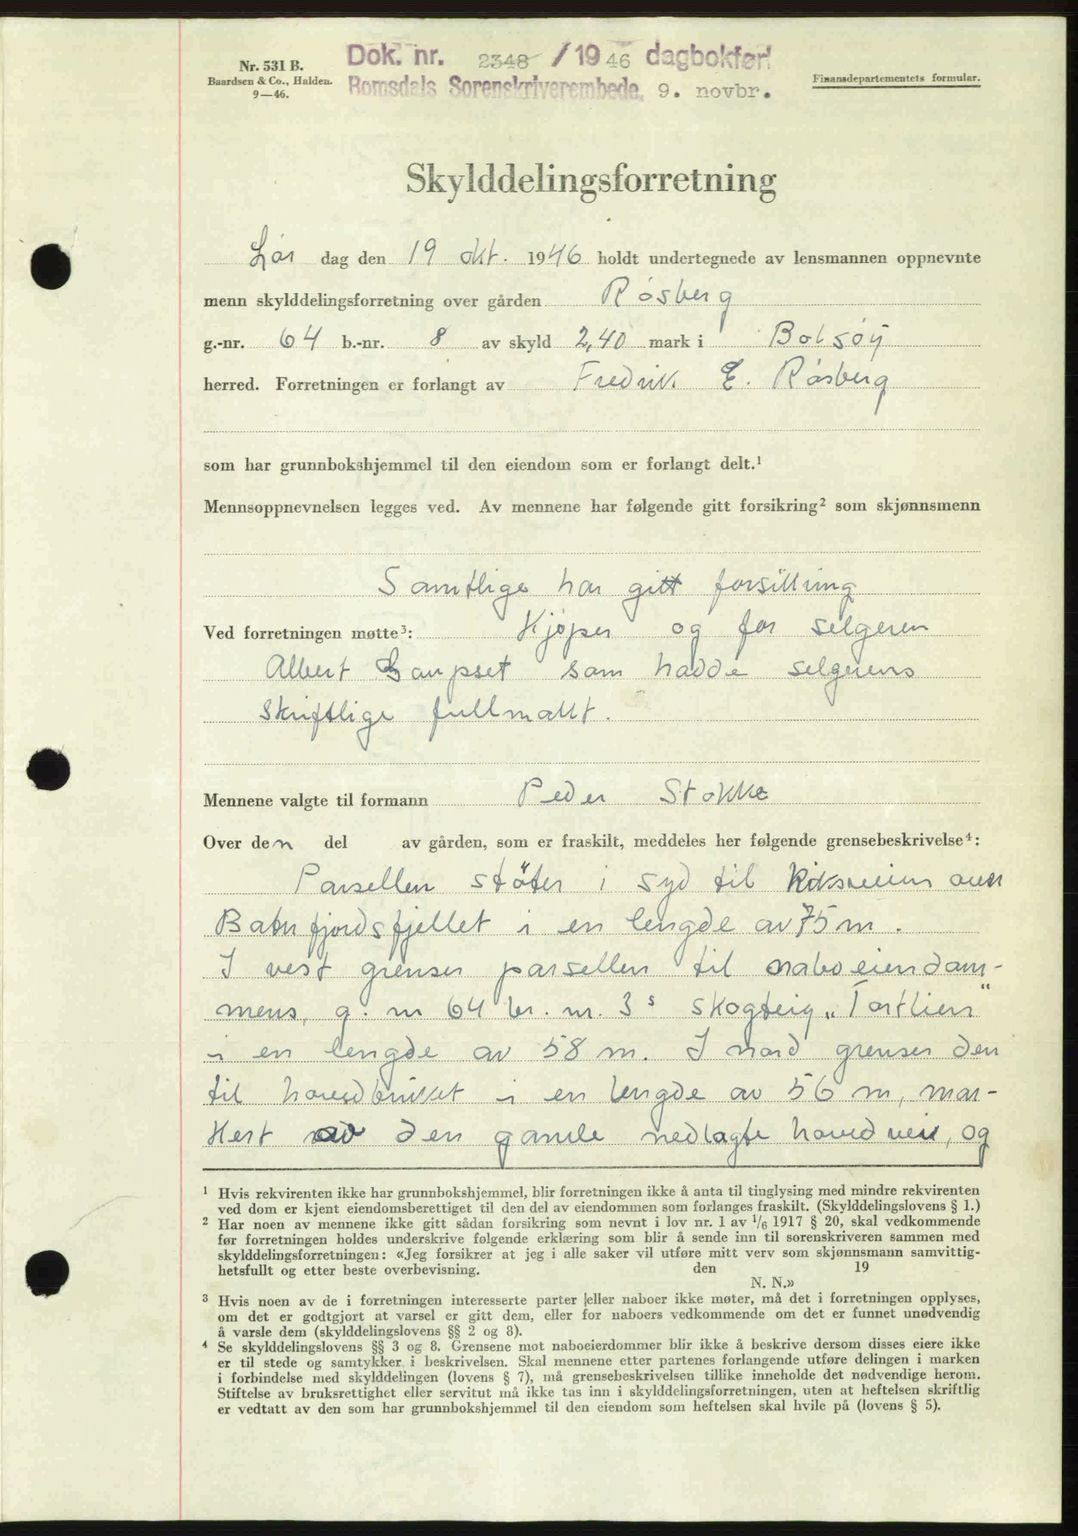 Nr. 531 B.
Baardsen & Co., Halden.
9—46.
Dok. nr. 2348 / 1946 dagbokført
Romsdals Sorenskriverembede, 9. novbr.
Finansdepartementets formular.
Skylddelingsforretning
Lør dag den 19 okt. 1946 holdt undertegnede av lensmannen oppnevnte
menn skylddelingsforretning over gården Røsberg
g.-nr. 64 b.-nr. 8 av skyld 2,40 mark i Bolsøy
herred. Forretningen er forlangt av Fredrik E. Røsberg
som har grunnbokshjemmel til den eiendom som er forlangt delt.¹
Mennsoppnevnelsen legges ved. Av mennene har følgende gitt forsikring² som skjønnsmenn
Samtlige har gitt forsikring
Ved forretningen møtte³: Kjøper og for selgeren
Albert Gaupset som hadde selgerens
skriftlige fullmakt.
Mennene valgte til formann Peder Stokke
Over den del av gården, som er fraskilt, meddeles her følgende grensebeskrivelse⁴:
Parsellen støter i syd til Riksveien over
Batnfjordsfjellet i en lengde av 75 m.
I vest grenser parsellen til naboeiendom-
mens, g. nr 64 br. nr. 3ˢ skogteig „Tortlien"
i en lengde av 58 m. I nord grenser den
til hovedbruket i en lengde av 56 m, mar-
kert av den gamle nedlagte hovedvei, og
¹ Hvis rekvirenten ikke har grunnbokshjemmel, blir forretningen ikke å anta til tinglysing med mindre rekvirenten
ved dom er kjent eiendomsberettiget til den del av eiendommen som forlanges fraskilt. (Skylddelingslovens § 1.)
² Har noen av mennene ikke gitt sådan forsikring som nevnt i lov nr. 1 av ¹/₆ 1917 § 20, skal vedkommende
før forretningen holdes underskrive følgende erklæring som blir å sende inn til sorenskriveren sammen med
skylddelingsforretningen: «Jeg forsikrer at jeg i alle saker vil utføre mitt verv som skjønnsmann samvittig-
hetsfullt og etter beste overbevisning. den 19
N. N.»
³ Hvis noen av de i forretningen interesserte parter eller naboer ikke møter, må det i forretningen opplyses,
om det er godtgjort at varsel er gitt dem, eller for naboers vedkommende om det er funnet unødvendig
å varsle dem (skylddelingslovens §§ 2 og 8).
⁴ Se skylddelingslovens §§ 3 og 8. Grensene mot naboeierdommer blir ikke å beskrive dersom disses eiere ikke
er til stede og samtykker i beskrivelsen. Skal mennene etter partenes forlangende utføre delingen i marken
i forbindelse med skylddelingen (lovens § 7), må grensebeskrivelsen tillike inneholde det nødvendige herom.
Stiftelse av bruksrettighet eller servitut må ikke tas inn i skylddelingsforretningen, uten at heftelsen skriftlig
er vedtatt av den som har grunnbokshjemmel til den eiendom som heftelsen skal hvile på (lovens § 5).